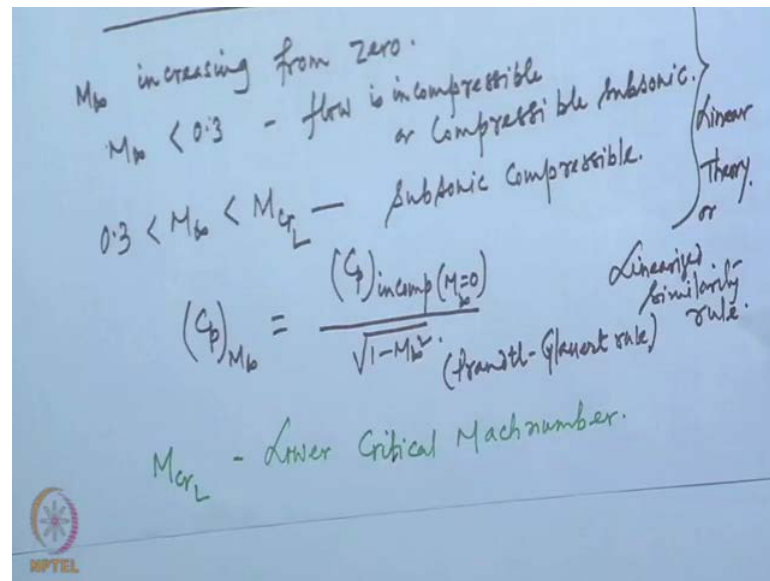 M∞ increasing from zero.
M∞ < 0.3 - flow is incompressible
or compressible subsonic.
0.3 < M∞ < M_cr_L — Subsonic Compressible.
Linear
Theory.
or
Linearized
similarity
rule.
(Cp)M∞ = (Cp)incomp (M∞=0) / √1-M∞²
(Prandtl-Glauert rule)
M_cr_L - Lower Critical Mach number.
NPTEL